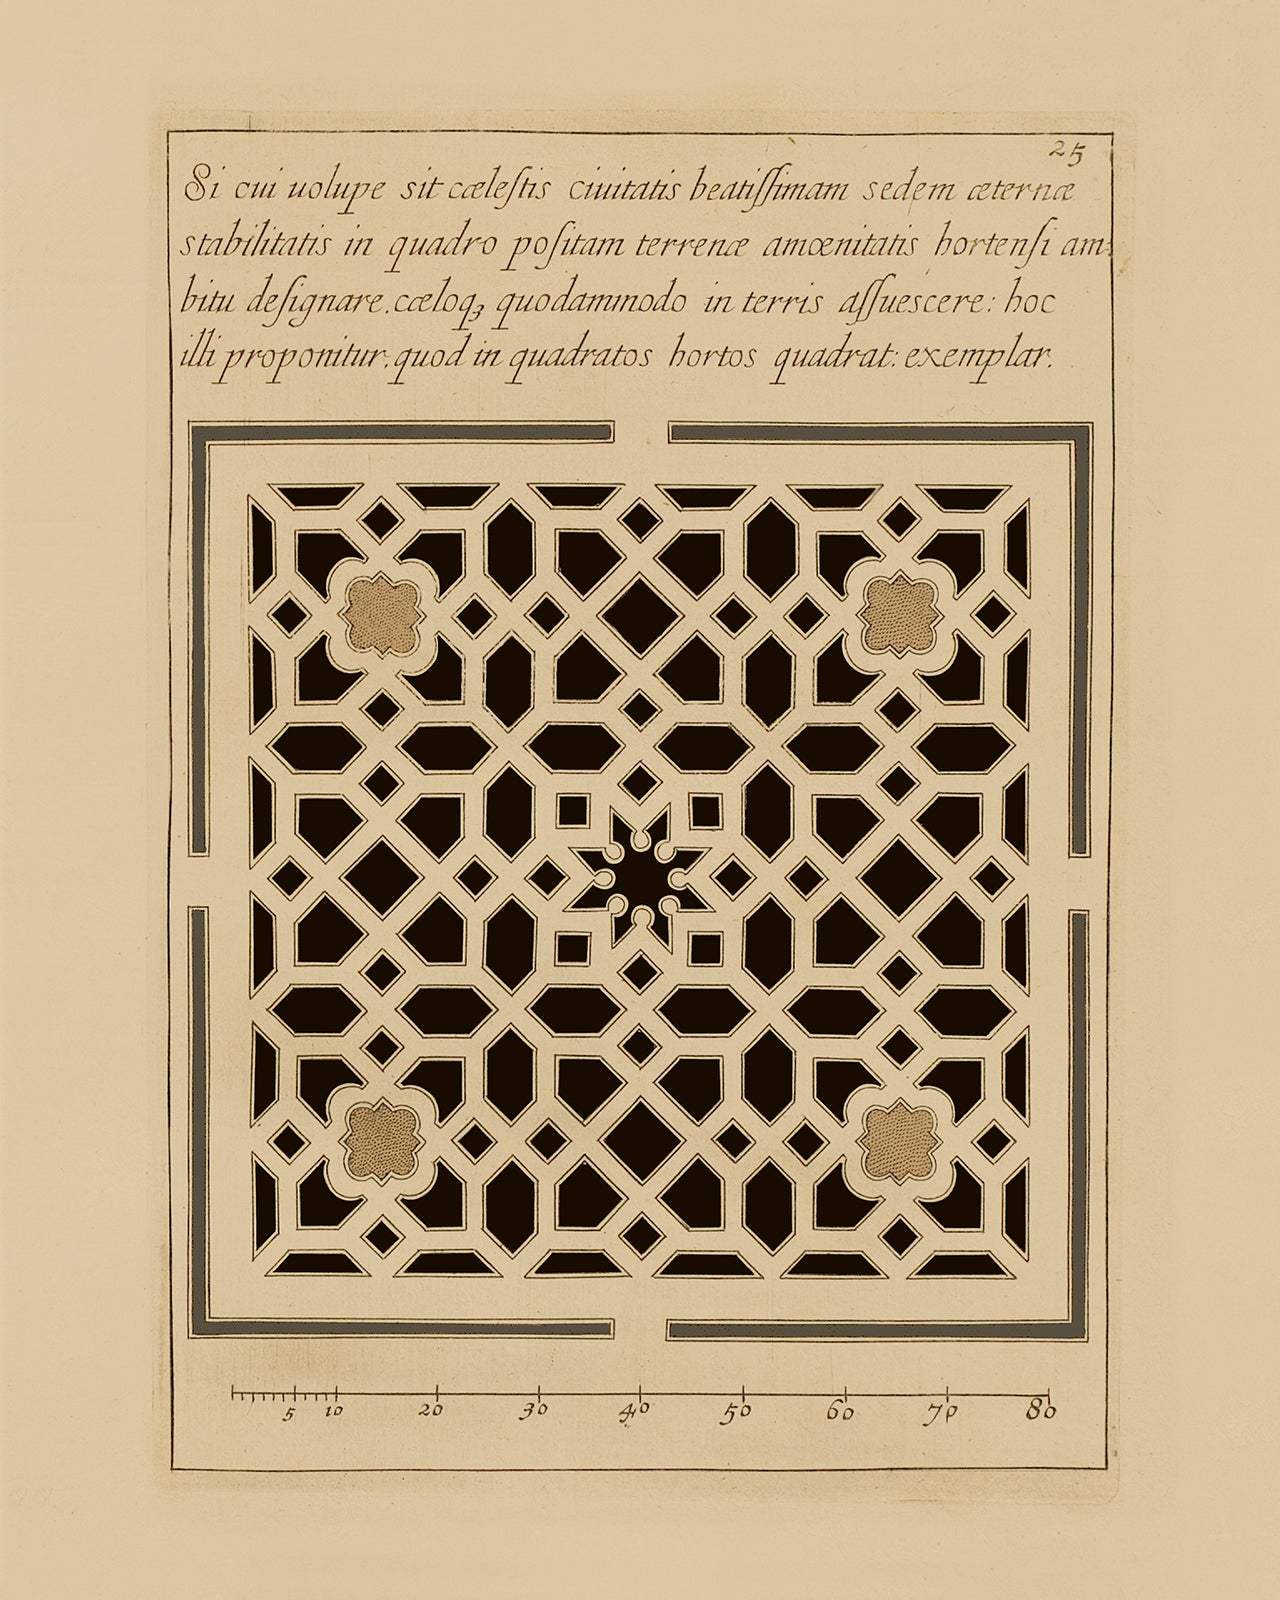 25
Si cui uolupe sit cæleſtis ciuitatis beatiſſimam sedem æternæ
stabilitatis in quadro poſitam terrenæ amœnitatis hortenſi am:
bitu deſignare. cæloqꝫ quodammodo in terris aſſuescere: hoc
illi proponitur. quod in quadratos hortos quadrat: exemplar.
5 10 20 30 40 50 60 70 80